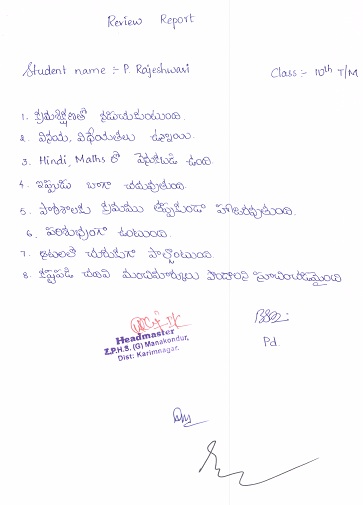 Review Report
Student name :- P. Rajeshwari
Class :- 10th T/M
1. క్రమశిక్షణతో నడుచుకుంటుంది.
2. వినయ, విధేయతలు ఉన్నాయి.
3. Hindi, Maths లో వెనుకబడి ఉంది.
4. ఇప్పుడు బాగా చదువుతుంది.
5. పాఠశాలకు క్రమము తప్పకుండా హాజరవుతుంది.
6. పరిశుభ్రంగా ఉంటుంది.
7. ఆటలలో చురుకుగా పాల్గొంటుంది.
8. కష్టపడి చదివి మంచిమార్కులు పొందాలని సూచించడమైంది
Headmaster
Z.P.H.S. (G) Manakondur,
Dist: Karimnagar.
Pd.